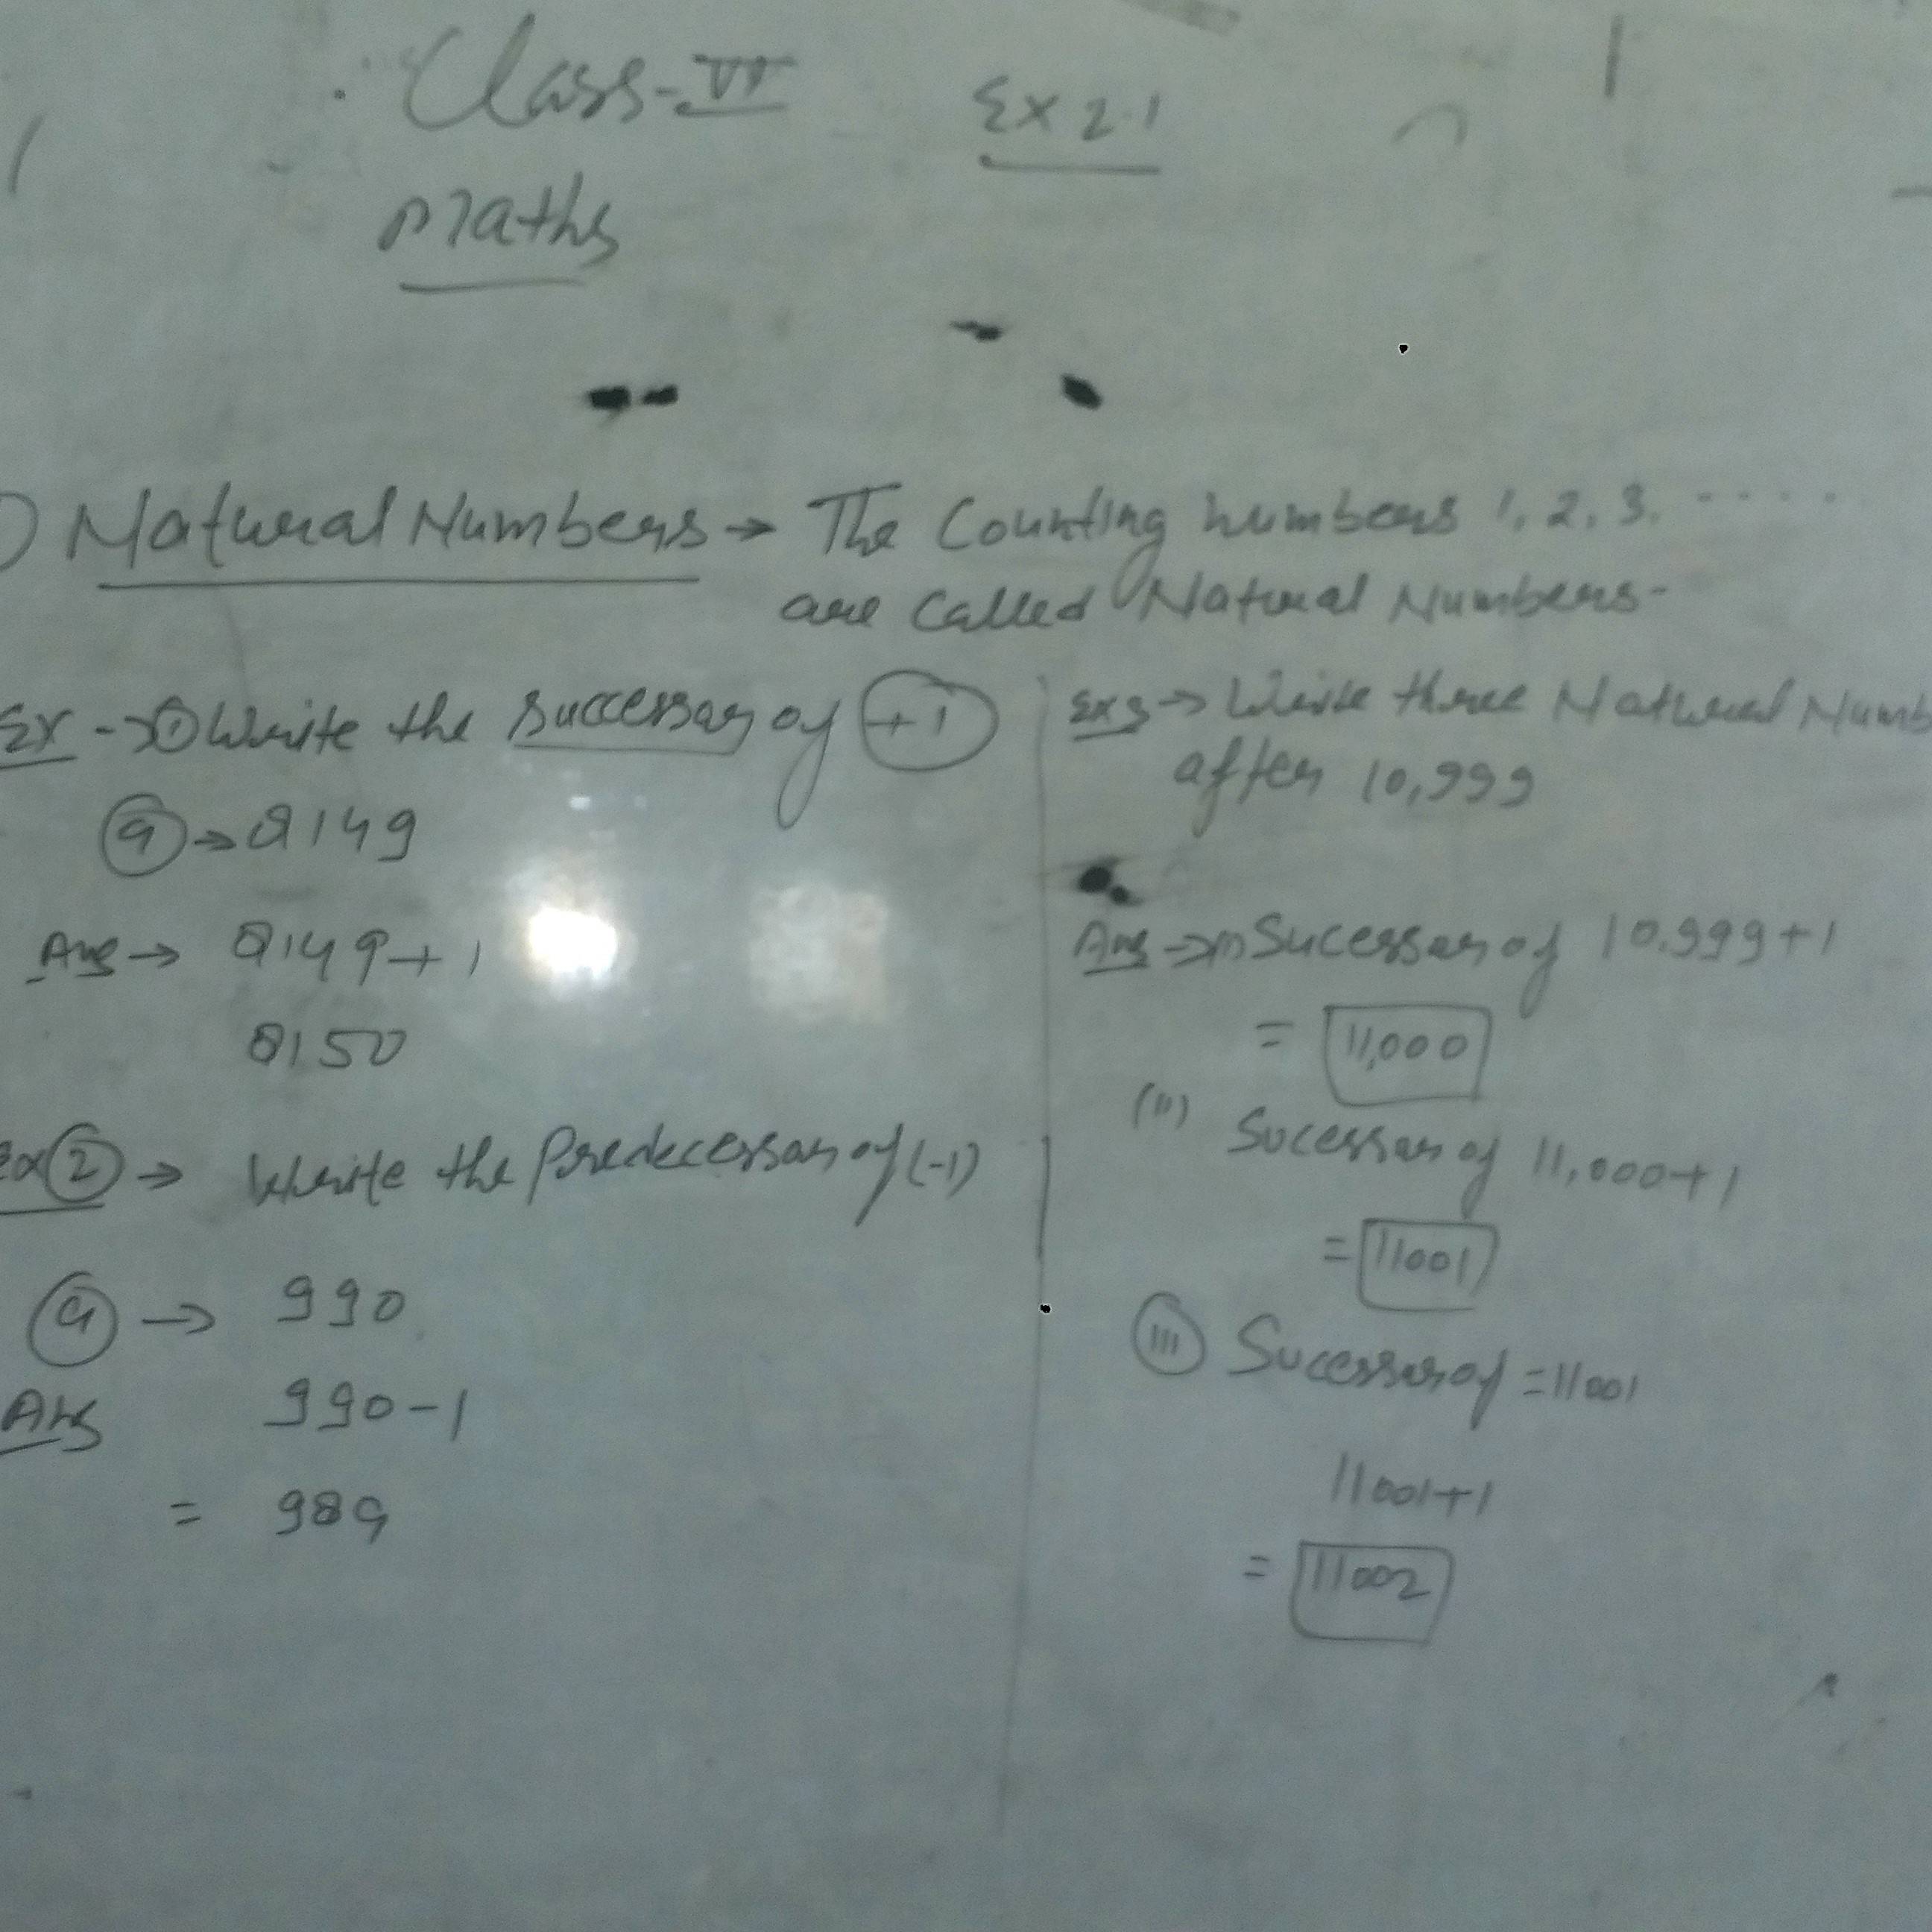 Class-VI
Ex 2.1
Maths
Natural Numbers → The Counting numbers 1, 2, 3. .....
are Called Natural Numbers-
Ex → ① Write the successor of +1
ⓐ → 8149
Ans → 8149+1
8150
Ex ② → Write the Predecessor of (-1)
ⓐ → 990
Ans 990-1
= 989
Ex 3 → Write three Natural Numb
after 10,999
Ans → (i) Sucessor of 10,999+1
= 11,000
(ii) Sucessor of 11,000+1
= 11001
(iii) Sucessor of = 11001
11001+1
= 11002